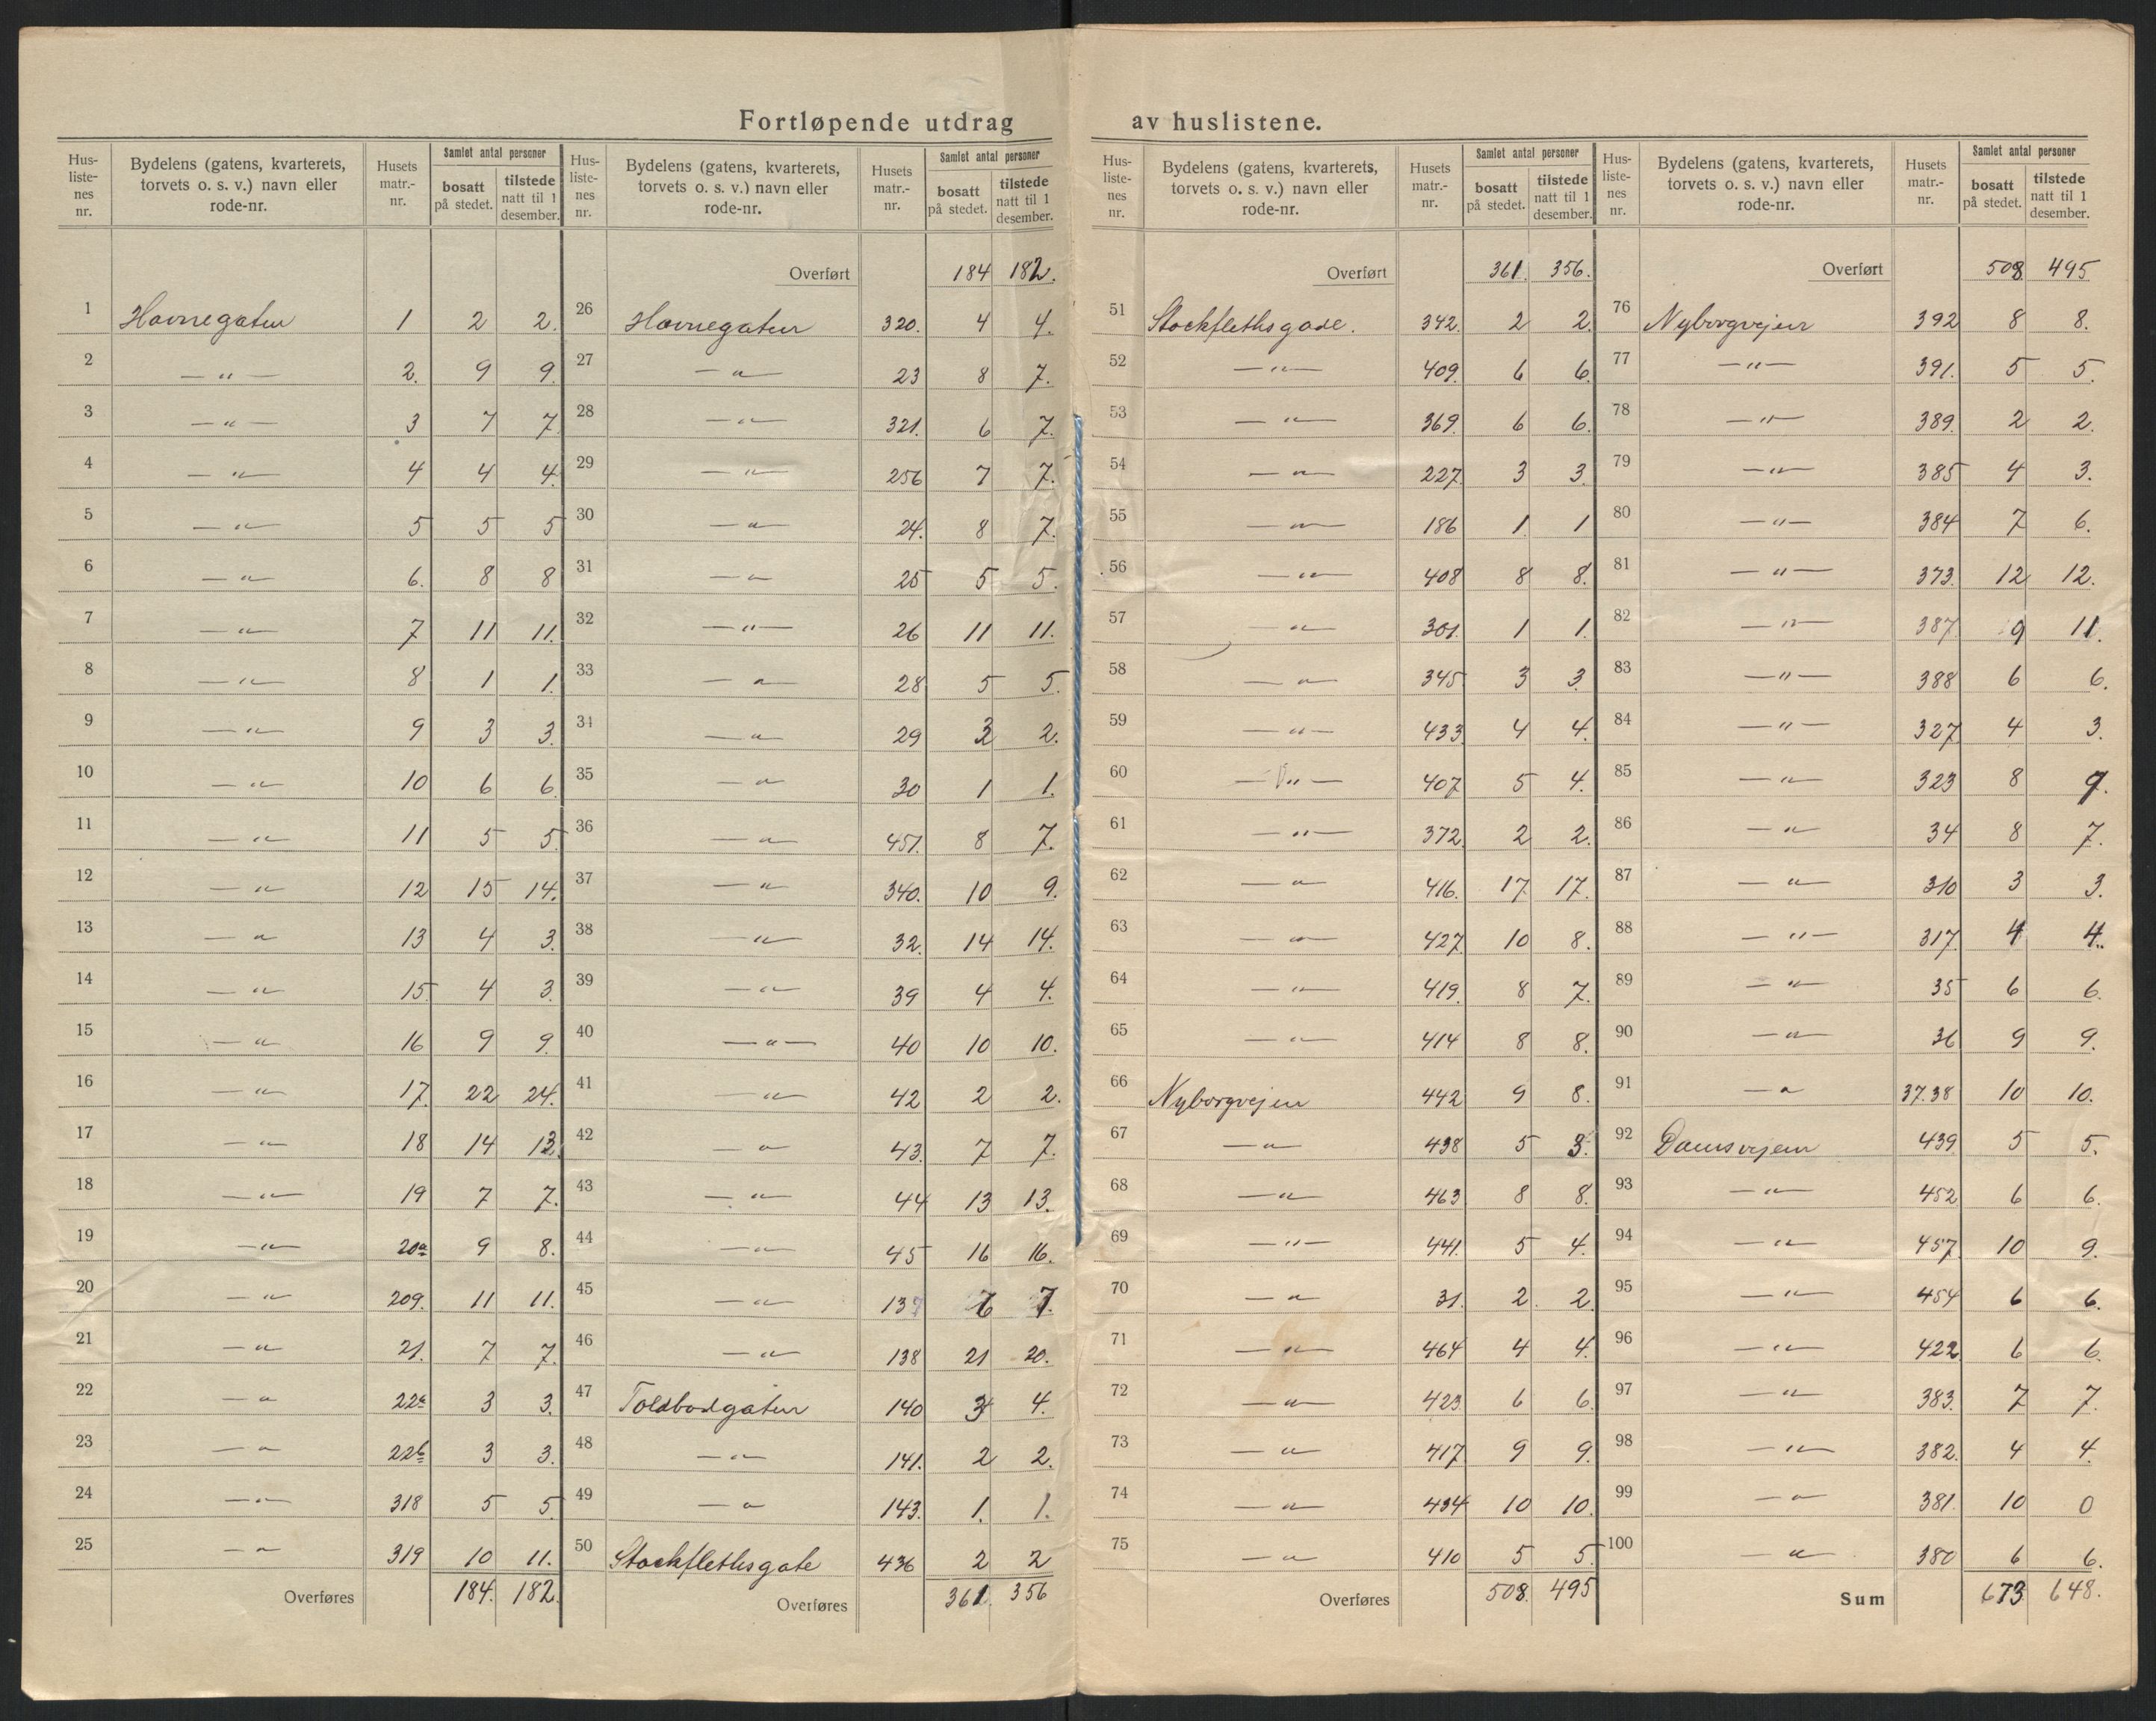 Fortløpende utdrag av huslistene.
Hus-liste-nes nr. | Bydelens (gatens, kvarterets, torvets o. s. v.) navn eller rode-nr. | Husets matr.-nr. | Samlet antal personer: bosatt på stedet. | tilstede natt til 1 desember.
1 Havnegaten 1 2 2.
2 — " — 2. 9 9.
3 — " — 3 7 7.
4 — " — 4 4 4.
5 — " — 5 5 5
6 — " — 6. 8 8
7 — " — 7 11 11.
8 — " — 8 1 1.
9 — " — 9 3 3.
10 — " — 10 6 6.
11 — " — 11 5 5.
12 — " — 12 15 14.
13 — " — 13 4 3.
14 — " — 15 4 3.
15 — " — 16 9 9.
16 — " — 17. 22 24.
17 — " — 18 14 13.
18 — " — 19 7 7.
19 — " — 20a 9 8.
20 — " — 209. 11 11.
21 — " — 21. 7 7.
22 — " — 22a 3 3.
23 — " — 22b 3 3.
24 — " — 318 5 5.
25 — " — 319 10 11.
Overføres 184. 182.
Hus-liste-nes nr. | Bydelens (gatens, kvarterets, torvets o. s. v.) navn eller rode-nr. | Husets matr.-nr. | Samlet antal personer: bosatt på stedet. | tilstede natt til 1 desember.
Overført 184 182.
26 Havnegaten 320. 4 4.
27 — " — 23 8 7.
28 — " — 321. 6 7.
29 — " — 256 7 7.
30 — " — 24. 8 7.
31 — " — 25 5 5.
32 — " — 26 11 11.
33 — " — 28 5 5.
34 — " — 29 2.
35 — " — 30 1 1.
36 — " — 451. 8 7.
37 — " — 340. 10 9.
38 — " — 32. 14 14.
39 — " — 39 4 4.
40 — " — 40 10 10.
41 — " — 42 2 2.
42 — " — 43. 7 7.
43 — " — 44 13 13.
44 — " — 45 16 16.
45 — " — 137 7.
46 — " — 138 21 20.
47 Toldbodgaten 140 3 4.
48 — " — 141. 2 2.
49 — " — 143. 1. 1.
50 Stockflethsgate 436 2 2
Overføres 361. 356
Hus-liste-nes nr. | Bydelens (gatens, kvarterets, torvets o. s. v.) navn eller rode-nr. | Husets matr.-nr. | Samlet antal personer: bosatt på stedet. | tilstede natt til 1 desember.
Overført 361. 356.
51 Stockflethsgade. 342. 2 2.
52 — " — 409. 6 6.
53 — " — 369. 6 6.
54 — " — 227. 3 3.
55 — " — 186 1. 1
56 — " — 408 8 8.
57 — " — 301. 1 1.
58 — " — 345 3 3.
59 — " — 433. 4 4.
60 — " — 407 5 4.
61 — " — 372. 2 2.
62 — " — 416. 17 17.
63 — " — 427. 10 8.
64 — " — 419. 8 7.
65 — " — 414 8 8.
66 Nyborgvejen 442 9 8.
67 — " — 438 5 3.
68 — " — 463 8 8.
69 — " — 441. 5 4.
70 — " — 31. 2. 2.
71 — " — 464 4 4.
72 — " — 423. 6 6.
73 — " — 417 9 9.
74 — " — 434 10 10.
75 — " — 410 5 5.
Overføres 508. 495
Hus-liste-nes nr. | Bydelens (gatens, kvarterets, torvets o. s. v.) navn eller rode-nr. | Husets matr.-nr. | Samlet antal personer: bosatt på stedet. | tilstede natt til 1 desember.
Overført 508. 495
76 Nyborgvejen 392 8 8.
77 — " — 391. 5 5.
78 — " — 389. 2 2.
79 — " — 385 4 3.
80 — " — 384 7 6.
81 — " — 373. 12 12.
82 — " — 387 9 11.
83 — " — 388 6 6.
84 — " — 327. 4 3.
85 — " — 323 8
86 — " — 34 8 7.
87 — " — 310 3 3.
88 — " — 317. 4 4.
89 — " — 35 6 6.
90 — " — 36 9 9.
91 — " — 37.38 10 10.
92 Damsvejen 439 5 5.
93 — " — 452 6 6.
94 — " — 457. 10 9.
95 — " — 454 6 6.
96 — " — 422. 6 6.
97 — " — 383. 7 7.
98 — " — 382. 4 4.
99 — " — 381. 10 0
100 — " — 380 6 6.
Sum 673. 648.